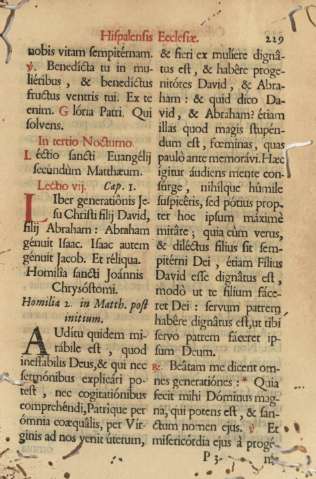 Hispalensis Ecclesiæ. 219
nobis vitam sempitérnam.
℣. Benedícta tu in mu-
liéribus, & benedíctus
fructus ventris tui. Ex te
enim. Glória Patri. Qui
solvens.
In tertio Nocturno.
Léctio sancti Euangélij
secúndùm Matthæum.
Lectio vij. Cap. 1.
LIber generatiónis Je-
su Christi filij David,
filij Abraham: Abraham
génuit Isaac. Isaac autem
génuit Jacob. Et réliqua.
Homilía sancti Joánnis
Chrysóstomi.
Homilia 2. in Matth. post
initium.
AUditu quidem mi-
rábile est, quod
ineffabilis Deus, & qui nec
sermónibus explicári po-
test, nec cogitatiónibus
comprehéndi, Patríque per
ómnia coæquális, per Vir-
ginis ad nos venit úterum,
& fieri ex muliere dignâ-
tus est, & habêre proge-
nitóres David, & Abra-
ham: & quid dico Da-
vid, & Abraham? étiam
illas quod magis stupén-
dum est, fœminas, quas
paulò ante memorávi. Hæc
ígitur áudiens mente con-
súrge, nihílque húmile
suspicêris, sed pótius prop-
ter hoc ipsum máximè
mirâre; quia cùm verus,
& diléctus filius sit sem-
pitérni Dei, étiam Filius
David esse dignâtus est,
modò ut te filium fáce-
ret Dei: servum patrem
habêre dignâtus est, ut tibi
servo patrem fáceret ip-
sum Deum.
℟. Beâtam me dicent om-
nes generatiónes: * Quia
fecit mihi Dóminus mag-
na, qui potens est, & san-
ctum nomen ejus. ℣ Et
misericórdia ejus à progé-
P 3